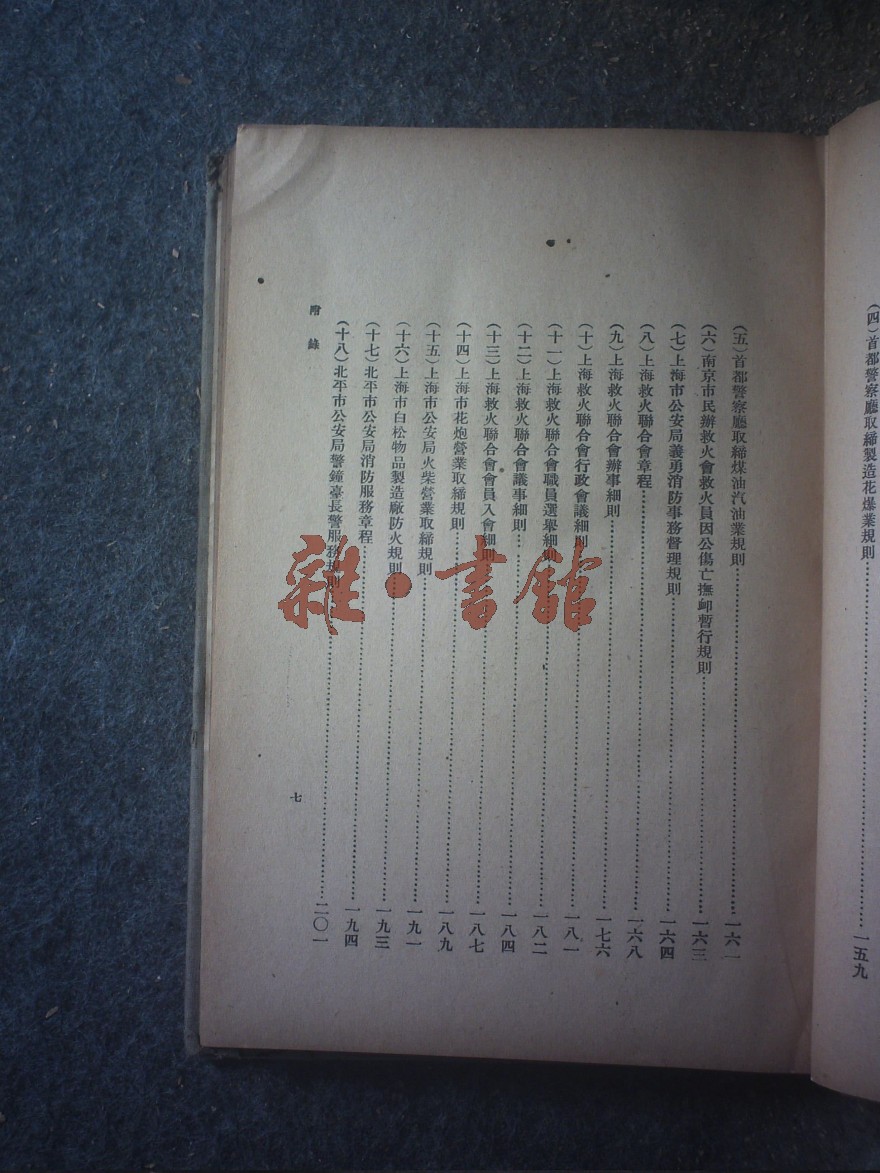 (四)首都警察廳取締製造花爆業規則……………一五九
(五)首都警察廳取締煤油汽油業規則……………一六一
(六)南京市民辦救火會救火員因公傷亡撫卹暫行規則……………一六三
(七)上海市公安局義勇消防事務督理規則……………一六四
(八)上海救火聯合會章程……………一六八
(九)上海救火聯合會辦事細則……………一七六
(十)上海救火聯合會行政會議細則……………一八一
(十一)上海救火聯合會職員選舉細則……………一八二
(十二)上海救火聯合會議事細則……………一八四
(十三)上海救火聯合會會員入會細則……………一八七
(十四)上海市花炮營業取締規則……………一八九
(十五)上海市公安局火柴營業取締規則……………一九一
(十六)上海市白松物品製造廠防火規則……………一九三
(十七)北平市公安局消防服務章程……………一九四
(十八)北平市公安局警鐘臺長警服務規則……………二〇一
附錄
七
雜·書館